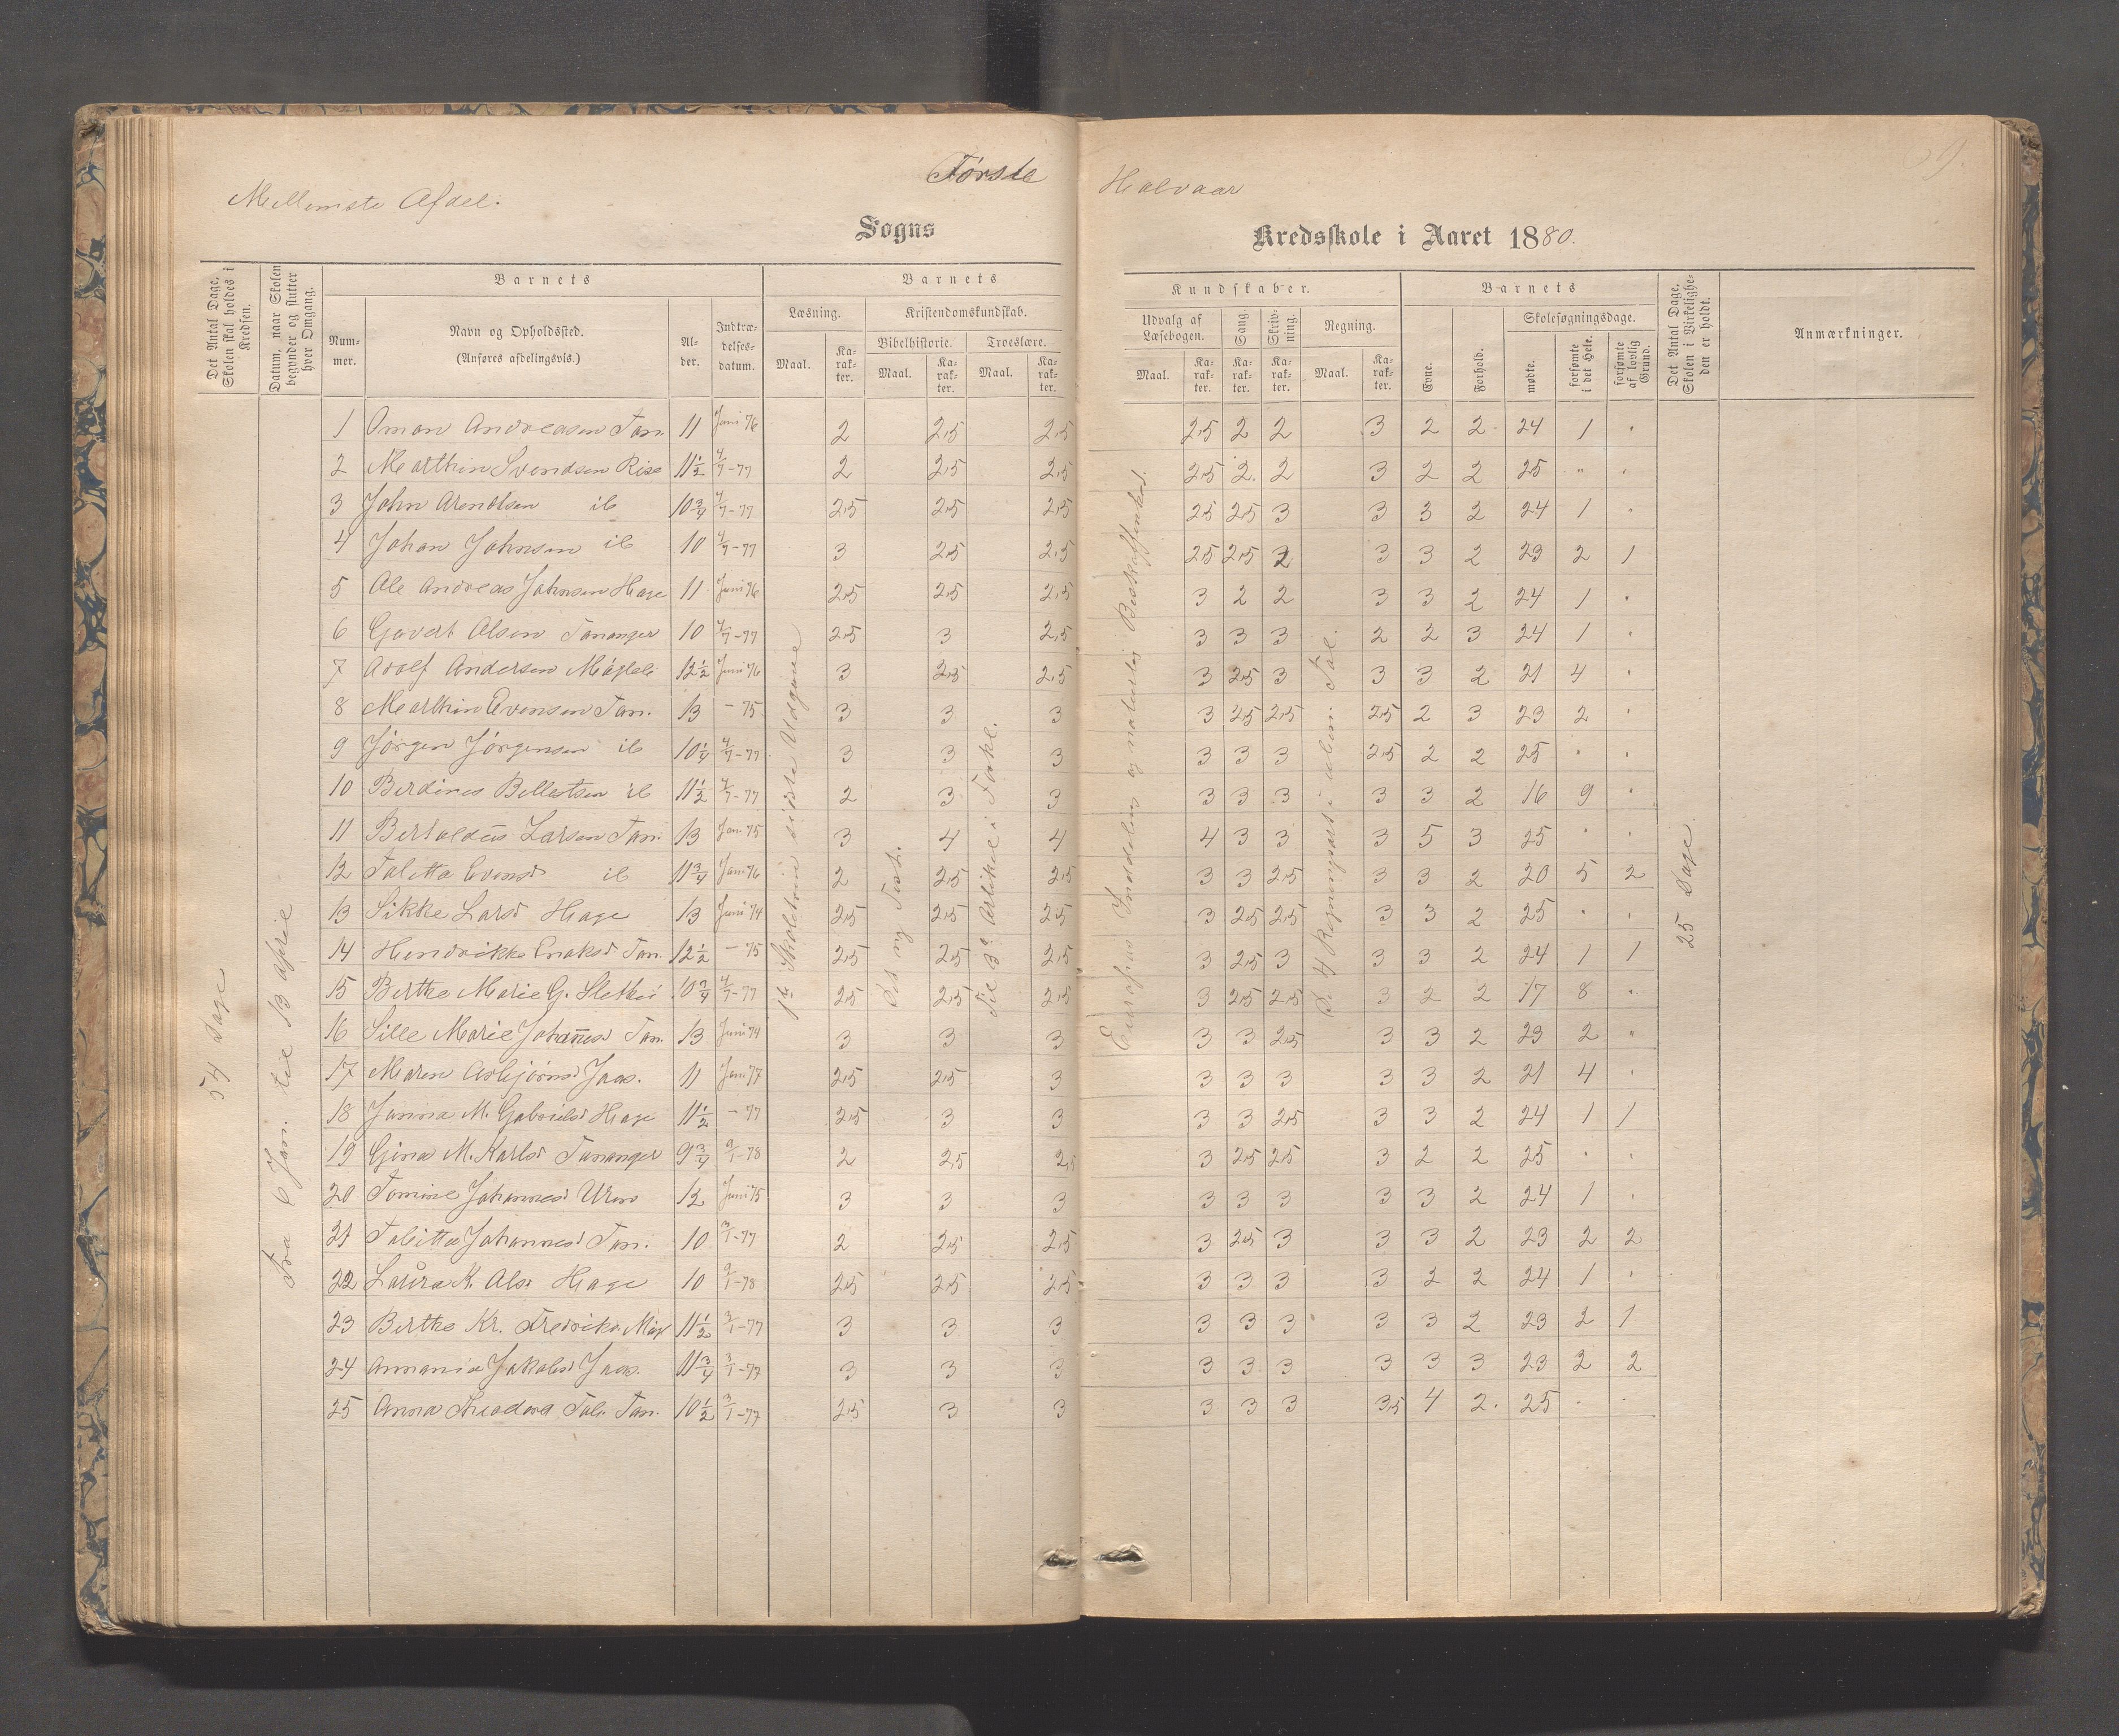 Første Halvaar
Mellemste Afdel.
Sogns Kredsskole i Aaret 1880.
Det Antal Dage, Skolen skal holdes i Kredsen.
Datum, naar Skolen begynder og slutter hver Omgang.
Barnets
Num-mer.
Navn og Opholdssted.
(Anføres afdelingsvis.)
Al-der.
Indtræ-delses-datum.
Barnets
Læsning.
Maal.
Ka-rak-ter.
Kristendomskundskab.
Bibelhistorie.
Maal.
Ka-rak-ter.
Troeslære.
Maal.
Ka-rak-ter.
Kundskaber.
Udvalg af Læsebogen.
Maal.
Ka-rak-ter.
Sang.
Ka-rak-ter.
Skriv-ning.
Ka-rak-ter.
Regning.
Maal.
Ka-rak-ter.
Barnets
Evne.
Forhold.
Skolesøgningsdage.
mødte.
forsømte i det Hele.
forsømte af lovlig Grund.
Det Antal Dage, Skolen i Virkelighe-den er holdt.
Anmærkninger.
54 Dage
Fra 6 Jan. til 13 April
Det ny Test.
Til 3die Artikel i Forkl.
25 Dage
1 Andreasen Tan. 11 Juni 76 2 2,5 2,5 2,5 2 2 3 2 2 24 1 "
2 Marthin Svendsen Risa 11½ 4/7-77 2 2,5 2,5 2,5 2 2 3 2 2 25 " "
3 John Arentsen ib 10¾ 4/7-77 2,5 2,5 2,5 2,5 2,5 3 3 3 2 24 1 "
4 Johan Johnsen ib 10 4/7-77 3 2,5 2,5 2,5 2,5 2 3 3 2 23 2 1
5 Ole Andreas Johnsen Hage 11 Juni 76 2,5 2,5 2,5 3 2 2 3 3 2 24 1 "
6 Govert Olsen Tananger 10 4/7-77 2,5 3 2,5 3 3 3 2 2 3 24 1 "
7 Adolf Andersen 12½ Juni 76 3 2,5 2,5 3 2,5 3 3 3 2 21 4 "
8 Marthin Evensen Tan. 13 - 75 3 3 3 3 2,5 2,5 2,5 2 3 23 2 "
9 Jørgen Jørgensen ib 10¼ 4/7-77 3 3 3 3 3 3 2,5 2 2 25 " "
10 Berdines ib 11½ 4/7-77 2 3 3 3 3 3 3 3 2 16 9 "
11 Bertoldus Larsen Tan. 13 Jan. 75 3 4 4 4 3 3 3 5 3 25 " "
12 Talitta Evensd ib 11¾ Jan. 76 2 2,5 2,5 3 3 2,5 3 3 2 20 5 2
13 Sikke Larsd Hage 13 Juni 74 2,5 2,5 2,5 3 2,5 2,5 3 3 2 25 " "
14 Hendrikke Enoksd Tan. 12½ - 75 2,5 2,5 2,5 3 2,5 3 3 3 2 24 1 1
15 Berthe Marie G. 10¾ 4/7-77 2,5 2,5 2,5 3 2,5 2,5 3 2 2 17 8 "
16 Sille Marie Johannesd Tan. 13 Juni 74 3 3 3 3 3 2,5 3 3 2 23 2 "
17 Maren Asbjørnsd Jaas. 11 Jan 77 2,5 2,5 3 3 3 3 3 3 2 21 4 "
18 Janna M. Gabrielsd Hage 11½ - 77 2,5 3 3 3 3 2,5 3 3 2 24 1 1
19 Gina M. Karlsd Tananger 9¾ 9/1-78 2 2,5 2,5 3 2,5 2,5 3 2 2 25 " "
20 Tomine Johannesd 12 Juni 75 3 3 3 3 3 3 3 3 2 24 1 "
21 Talitta Johannesd Tan. 10 3/1-77 2 2,5 2,5 3 2,5 3 3 3 2 23 2 2
22 Laura K. Olsd Hage 10 9/1-78 2,5 2,5 2,5 3 3 3 3 2 2 24 1 "
23 Berthe Kr. 11½ 3/1-77 3 3 3 3 3 3 3 3 2 23 2 1
24 Jakobsd Jaas. 11¾ 3/1-77 3 3 3 3 3 3 3 3 3 23 2 2
25 Anna Theodora Tan. 10½ 3/1-77 2,5 3 3 3 3 3 3,5 4 2 25 " "